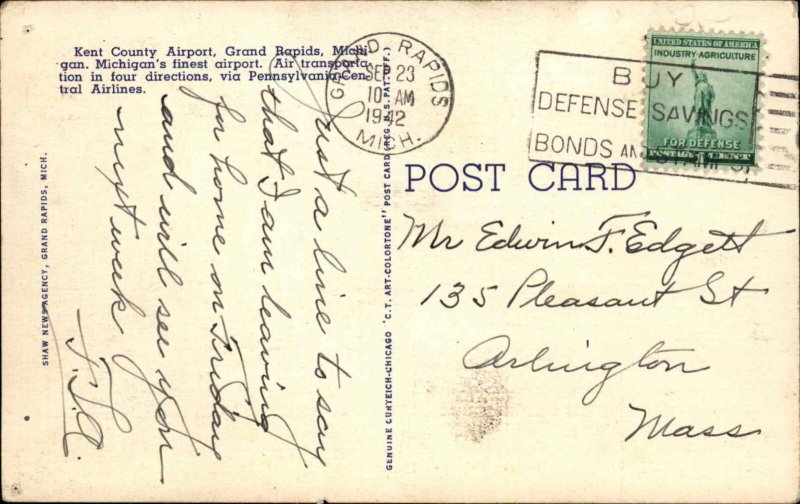 Kent County Airport, Grand Rapids, Michi-
gan. Michigan's finest airport. (Air transporta-
tion in four directions, via Pennsylvania-Cen-
tral Airlines.
Just a line to say
that I am leaving
for home on Friday
and will see you
next week
SHAW NEWS AGENCY, GRAND RAPIDS, MICH.
GENUINE CURTEICH-CHICAGO "C.T. ART-COLORTONE" POST CARD (REG. U.S. PAT. OFF.)
GRAND RAPIDS
SEP 23
10 AM
1942
MICH.
BUY
DEFENSE SAVINGS
BONDS AND
UNITED STATES OF AMERICA
INDUSTRY AGRICULTURE
FOR DEFENSE
POST CARD
Mr Edwin F. Edgett
135 Pleasant St
Arlington
Mass